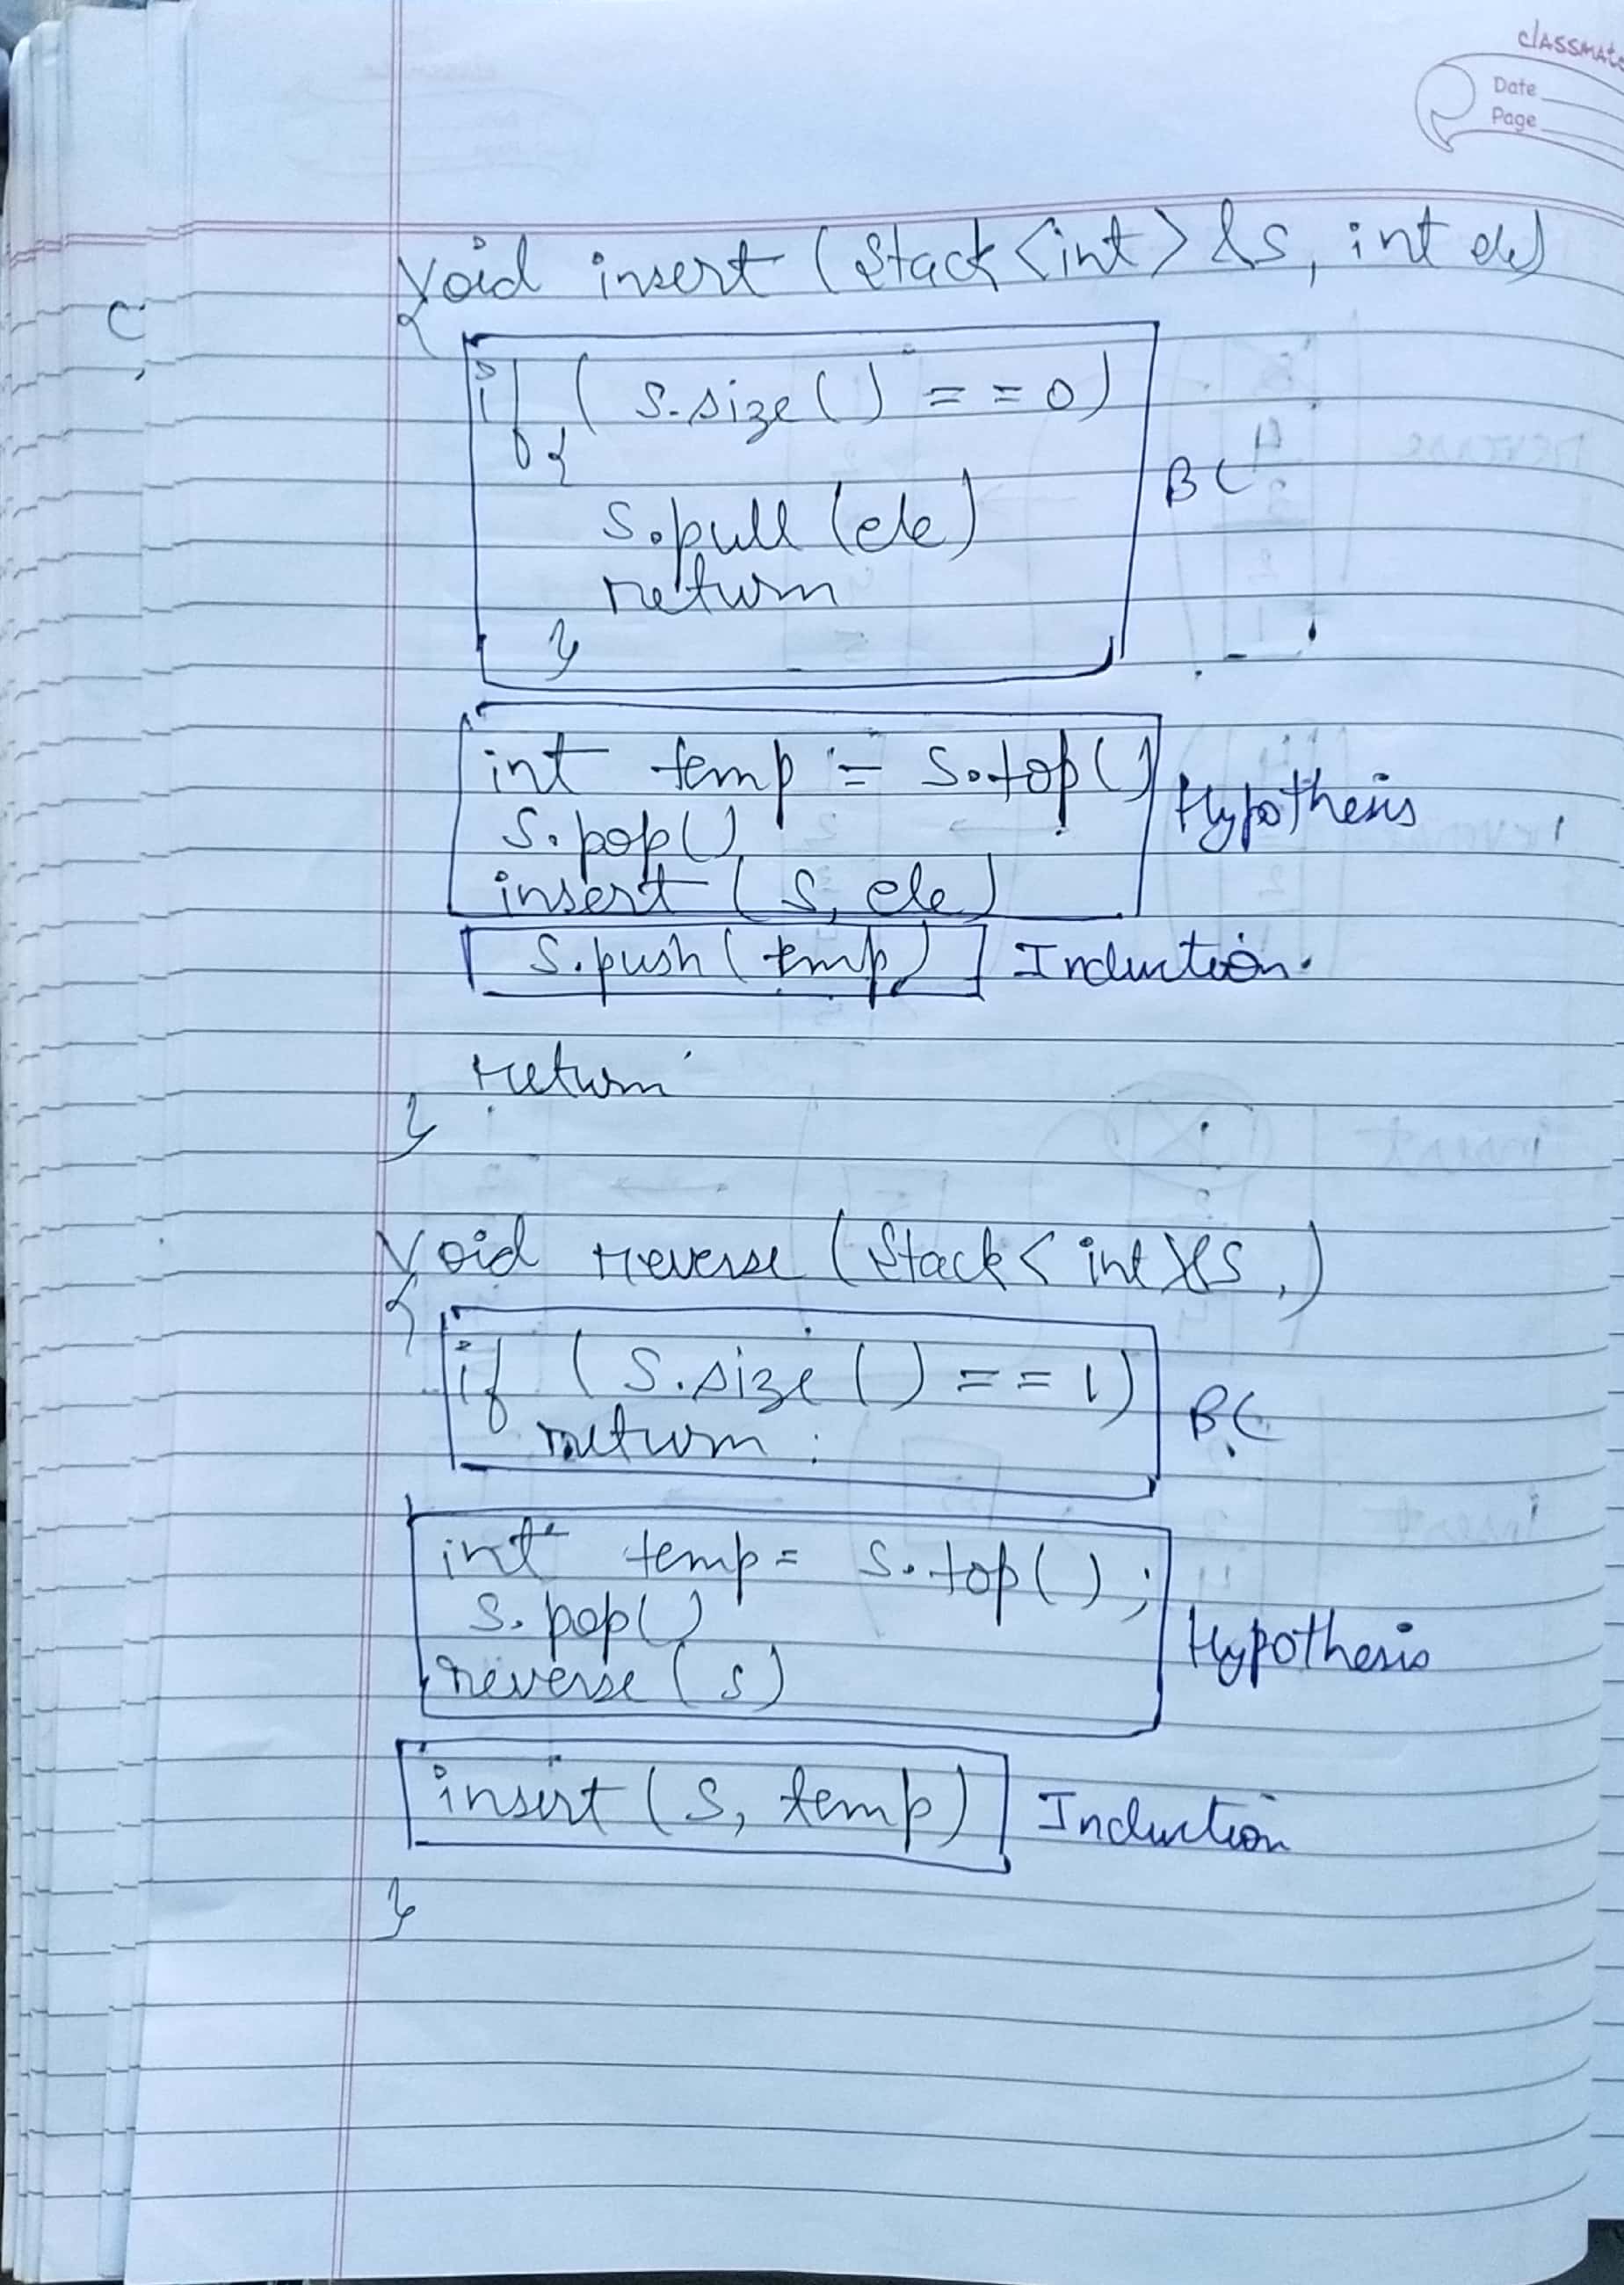 classmate
Date
Page
void insert (stack <int> &s, int ele)
{
if ( s.size() == 0)
{
S.pull (ele)
return
}
BC
int temp = S.top()
S.pop()
insert ( S, ele)
Hypothesis
S.push ( temp)
Induction.
return
}
void reverse (stack < int >&s,)
{
if ( S.size () == 1)
return :
BC
int temp = S.top() ;
S.pop()
reverse (s)
Hypothesis
insert (S, temp)
Induction
}